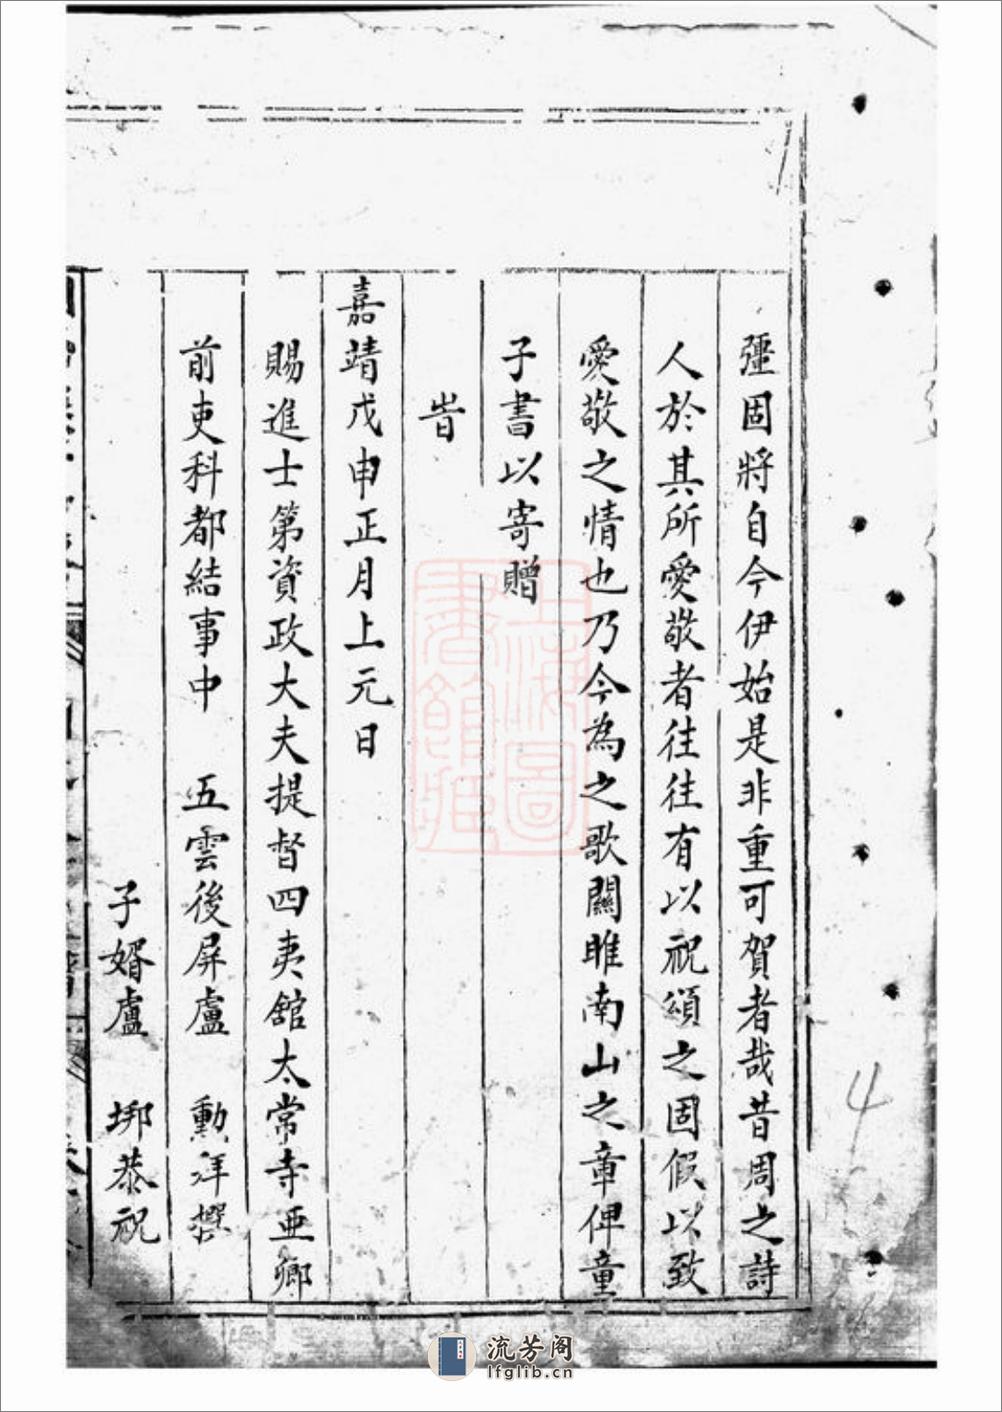 彊固將自今伊始是非重可賀者哉昔周之詩
人於其所愛敬者往往有以祝頌之固假以致
愛敬之情也乃今為之歌關雎南山之章俾童
子書以寄贈
旹
嘉靖戊申正月上元日
賜進士第資政大夫提督四夷舘太常寺亚卿
前吏科都結事中 五雲後屏盧 勳拜撰
子婿盧 垹恭祝
4
上海圖
書館藏
流芳阁
lfglib.cn